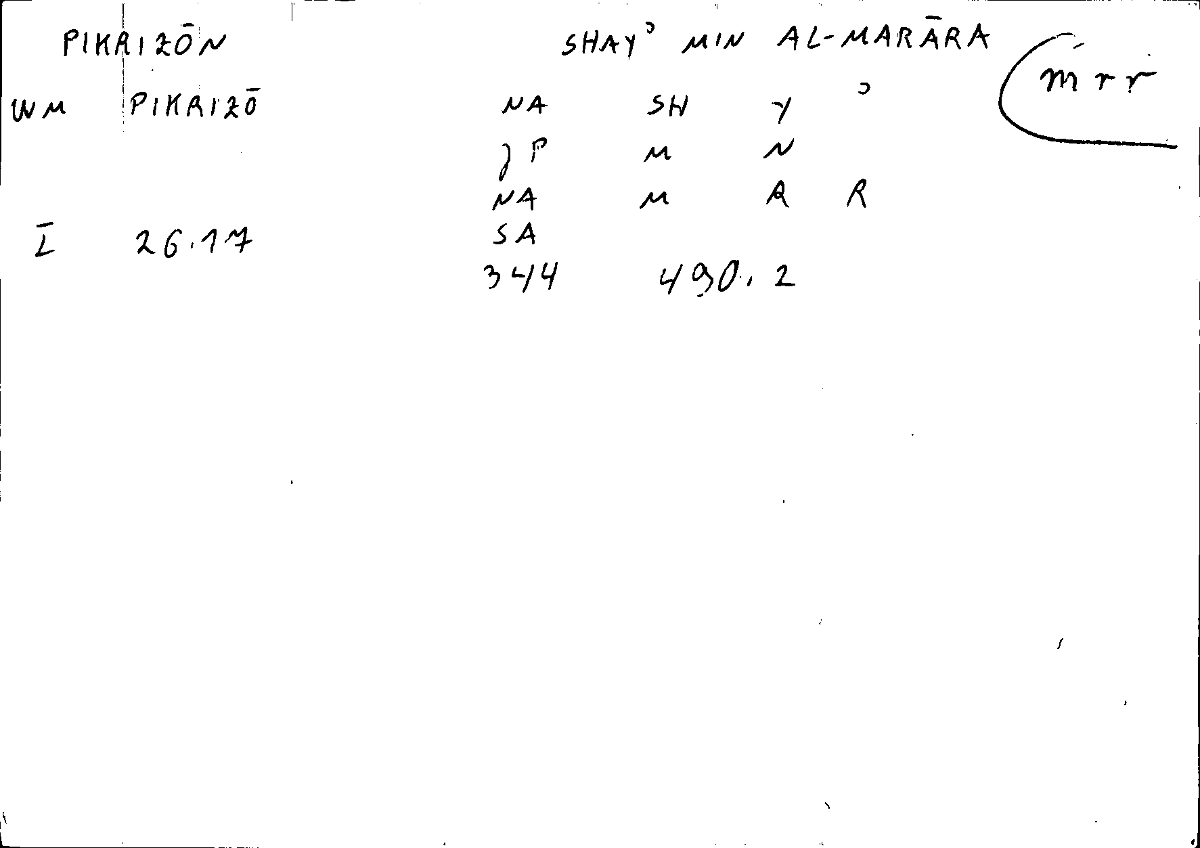 PIKRIZŌN SHAYʾ MIN AL-MARĀRA mrr
WM PIKRIZŌ NA SH Y ʾ
P M N
NA M R R
SA
I 26.17
344 490.2